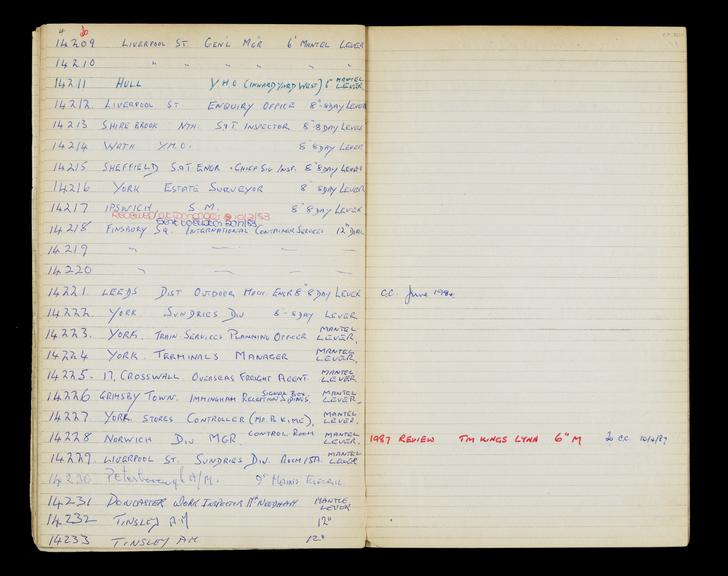 14209 LIVERPOOL ST. GEN'L MGR 6" MANTEL LEVER
14210 " " " " " "
14211 HULL Y.M.O (INWARD YARD WEST) 6" MANTEL LEVER
14212. LIVERPOOL ST. ENQUIRY OFFICE 8" 8 DAY LEVER
14213 SHIREBROOK NTH. S&T INSPECTOR 8" 8 DAY LEVER
14214 WATH Y.M.O. 8" 8 DAY LEVER
14215 SHEFFIELD S&T ENGR. CHIEF SIG INSP. 8" 8 DAY LEVER
14216 YORK ESTATE SURVEYOR 8" 8 DAY LEVER
14217 IPSWICH S.M. 8" 8 DAY LEVER
RECEIVED 10/2/83
14218 FINSBURY SQ. INTERNATIONAL CONTAINER SERVICES 12" DIAL
14219 " — — —
14220 " — — —
14221 LEEDS DIST OUTDOOR MACH ENGR 8" 8 DAY LEVER C.C. June 1984
14222. YORK. SUNDRIES DIV 8" 8 DAY LEVER
14223. YORK. TRAIN SERVICES PLANNING OFFICER MANTEL LEVER.
14224 YORK. TERMINALS MANAGER MANTEL LEVER
14225. 17, CROSSWALL OVERSEAS FREIGHT AGENT. MANTEL LEVER.
14226 GRIMSBY TOWN. IMMINGHAM RECEPTION SIDINGS. SIGNAL BOX MANTEL LEVER.
14227 YORK STORES CONTROLLER (MR. R. KIME). MANTEL LEVER.
14228 NORWICH DIV MGR. CONTROL ROOM MANTEL LEVER. 1987 REVIEW TM KINGS LYNN 6" M To C.C. 10/4/87
14229. LIVERPOOL ST. SUNDRIES DIV. ROOM 157A. MANTEL LEVER
14230 Peterborough A/M. 9" MAINS ELECTRIC
14231 DONCASTER WORK INSPECTOR Mr NEEDHAM MANTLE LEVOR
14232 TINSLEY A.M 12"
14233 TINSLEY AM 12"